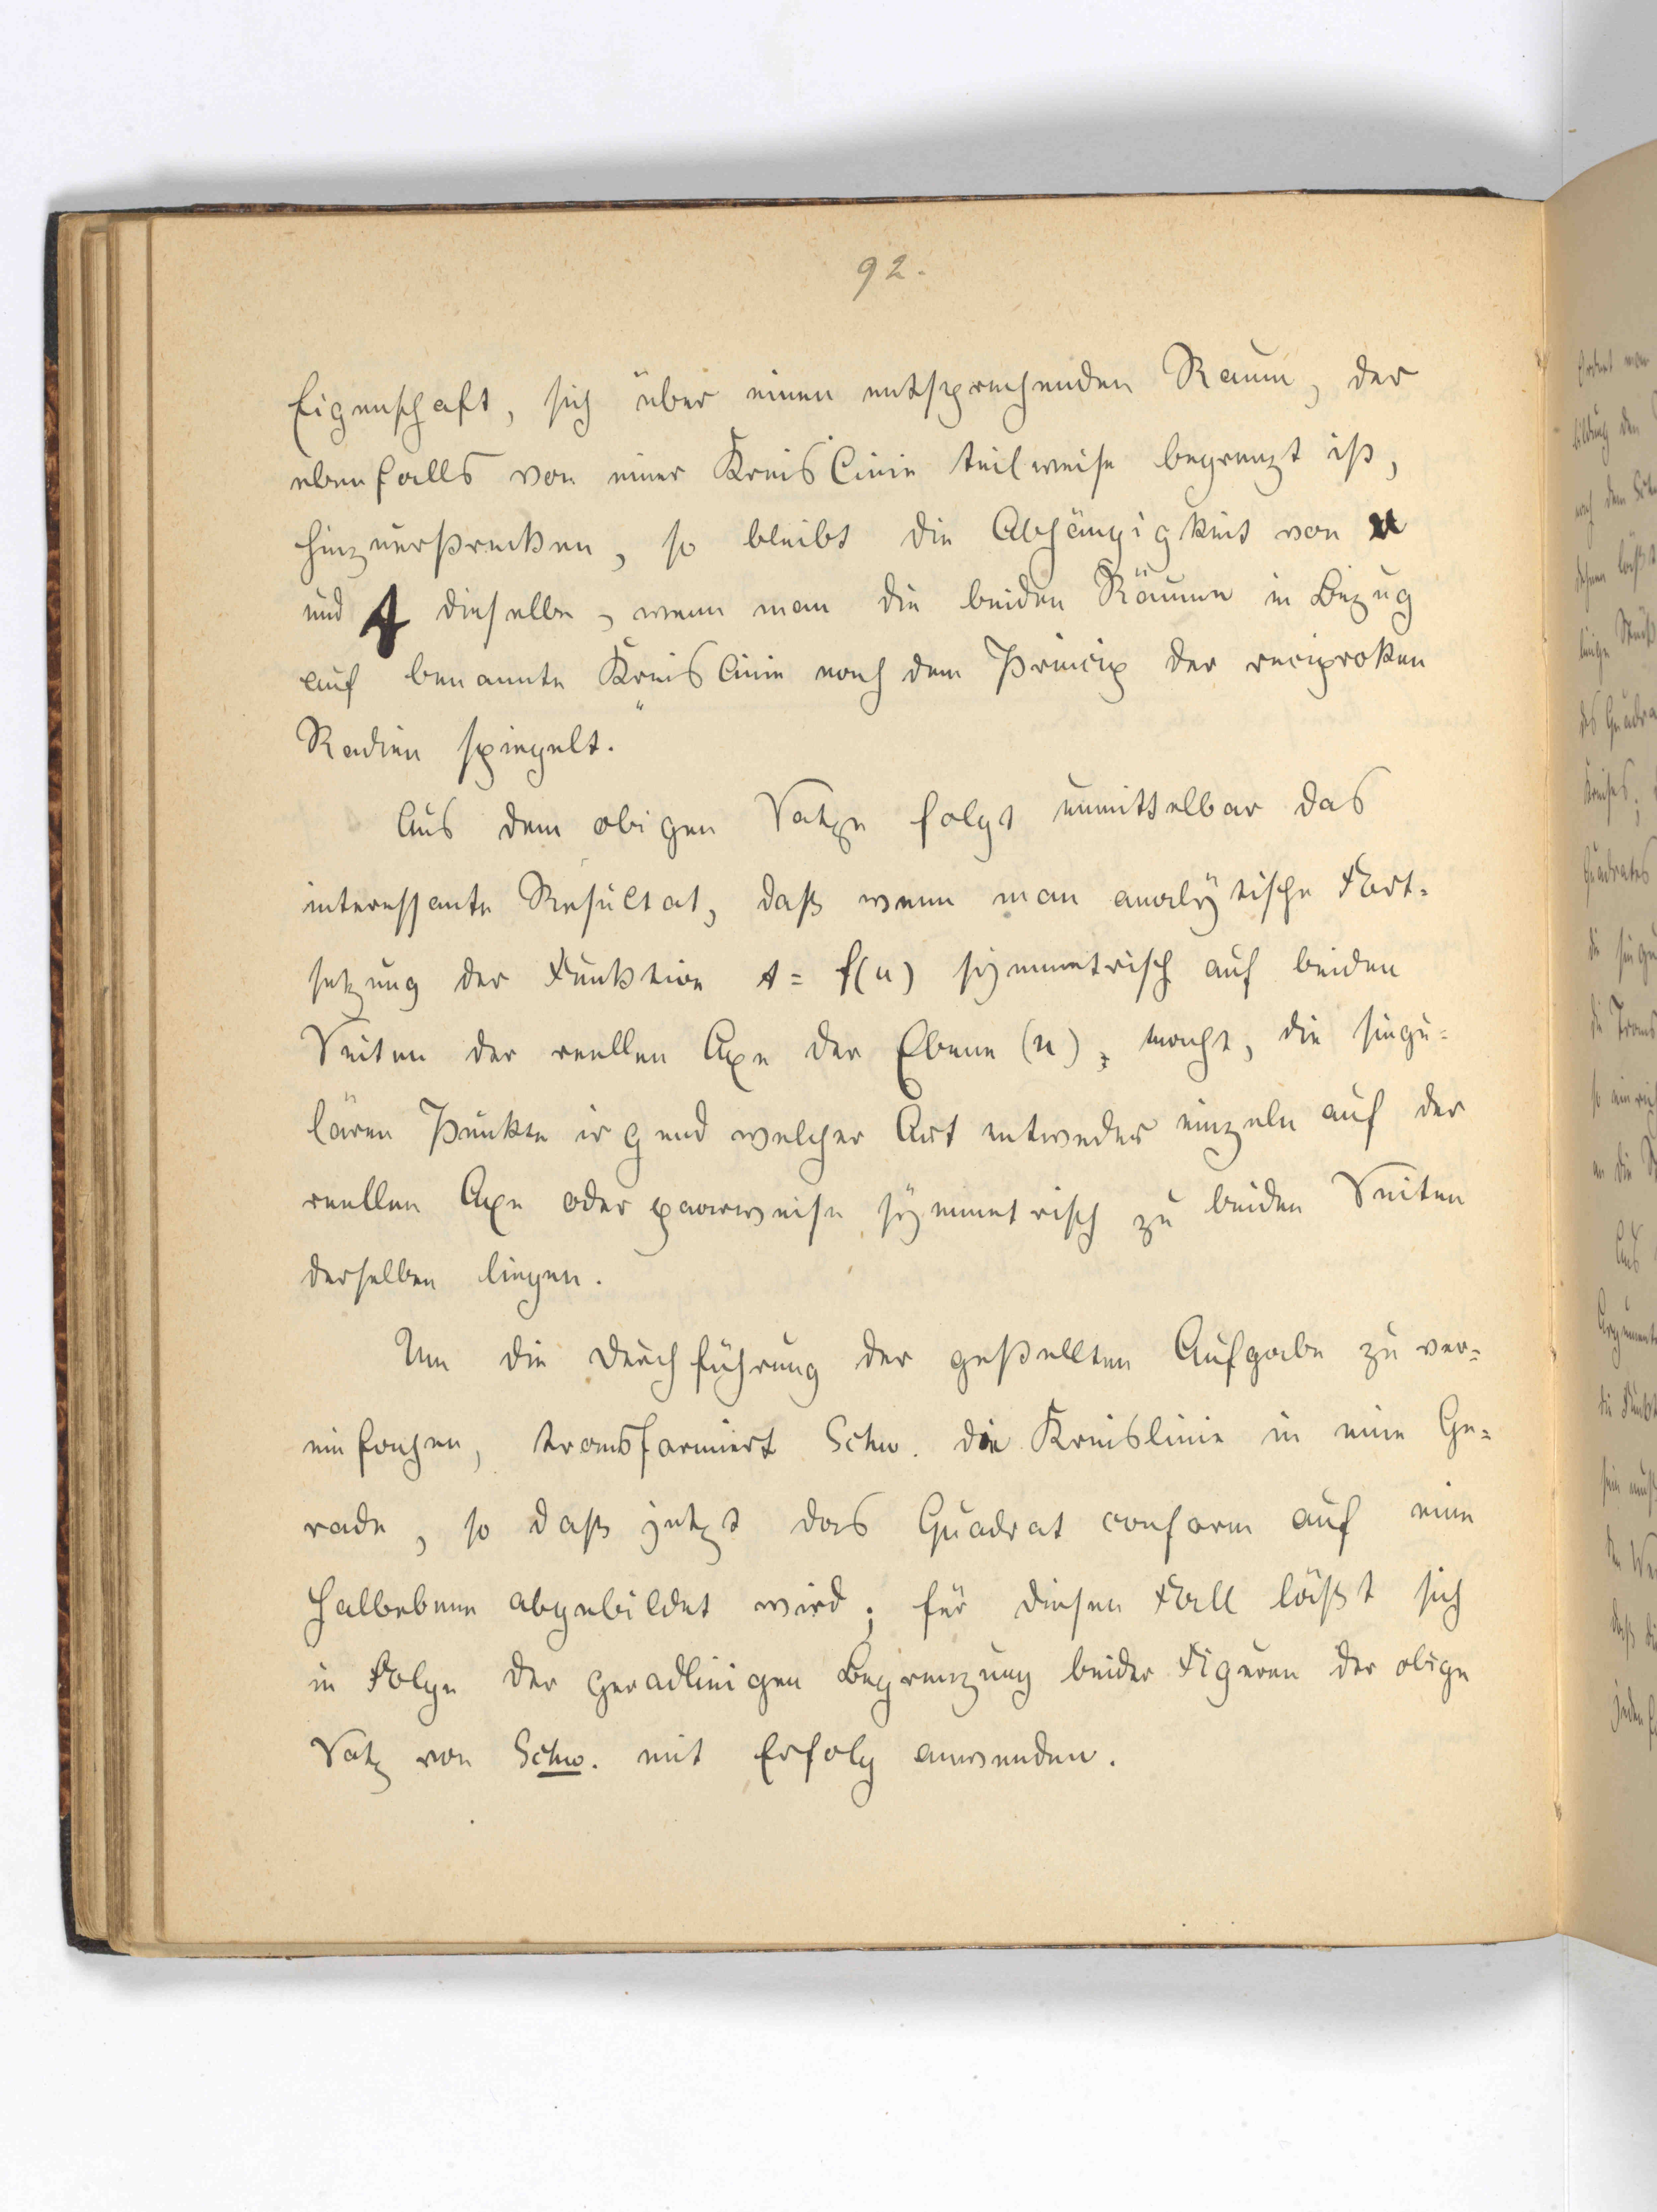 92.
Eigenschaft, sich über einen entsprechenden Raum, der
ebenfalls von einer Kreislinie teilweise begrenzt ist,
hinzuerstrecken, so bleibt die Abhängigkeit von u
und t dieselbe, wenn man die beiden Räume in Bezug
auf benannte Kreislinie nach dem Princip der reciproken
Radien spiegelt.
Aus dem obigen Satze folgt unmittelbar das
interessante Resultat, daß wenn man analytische Fort=
setzung der Funktion t = f(u) symmetrisch auf beiden
Seiten der reellen Axe der Ebene (u), macht, die singu=
lären Punkte irgend welcher Art entweder einzeln auf der
reellen Axe oder paarweise symmetrisch zu beiden Seiten
derselben liegen.
Um die Durchführung der gestellten Aufgabe zu ver=
einfachen, transformiert Schw. die Kreislinie in eine Ge=
rade, so daß jetzt das Quadrat conform auf eine
Halbebene abgebildet wird; für diesen Fall läßt sich
in Folge der geradlinigen Begrenzung beider Figuren der obige
Satz von Schw. mit Erfolg anwenden.